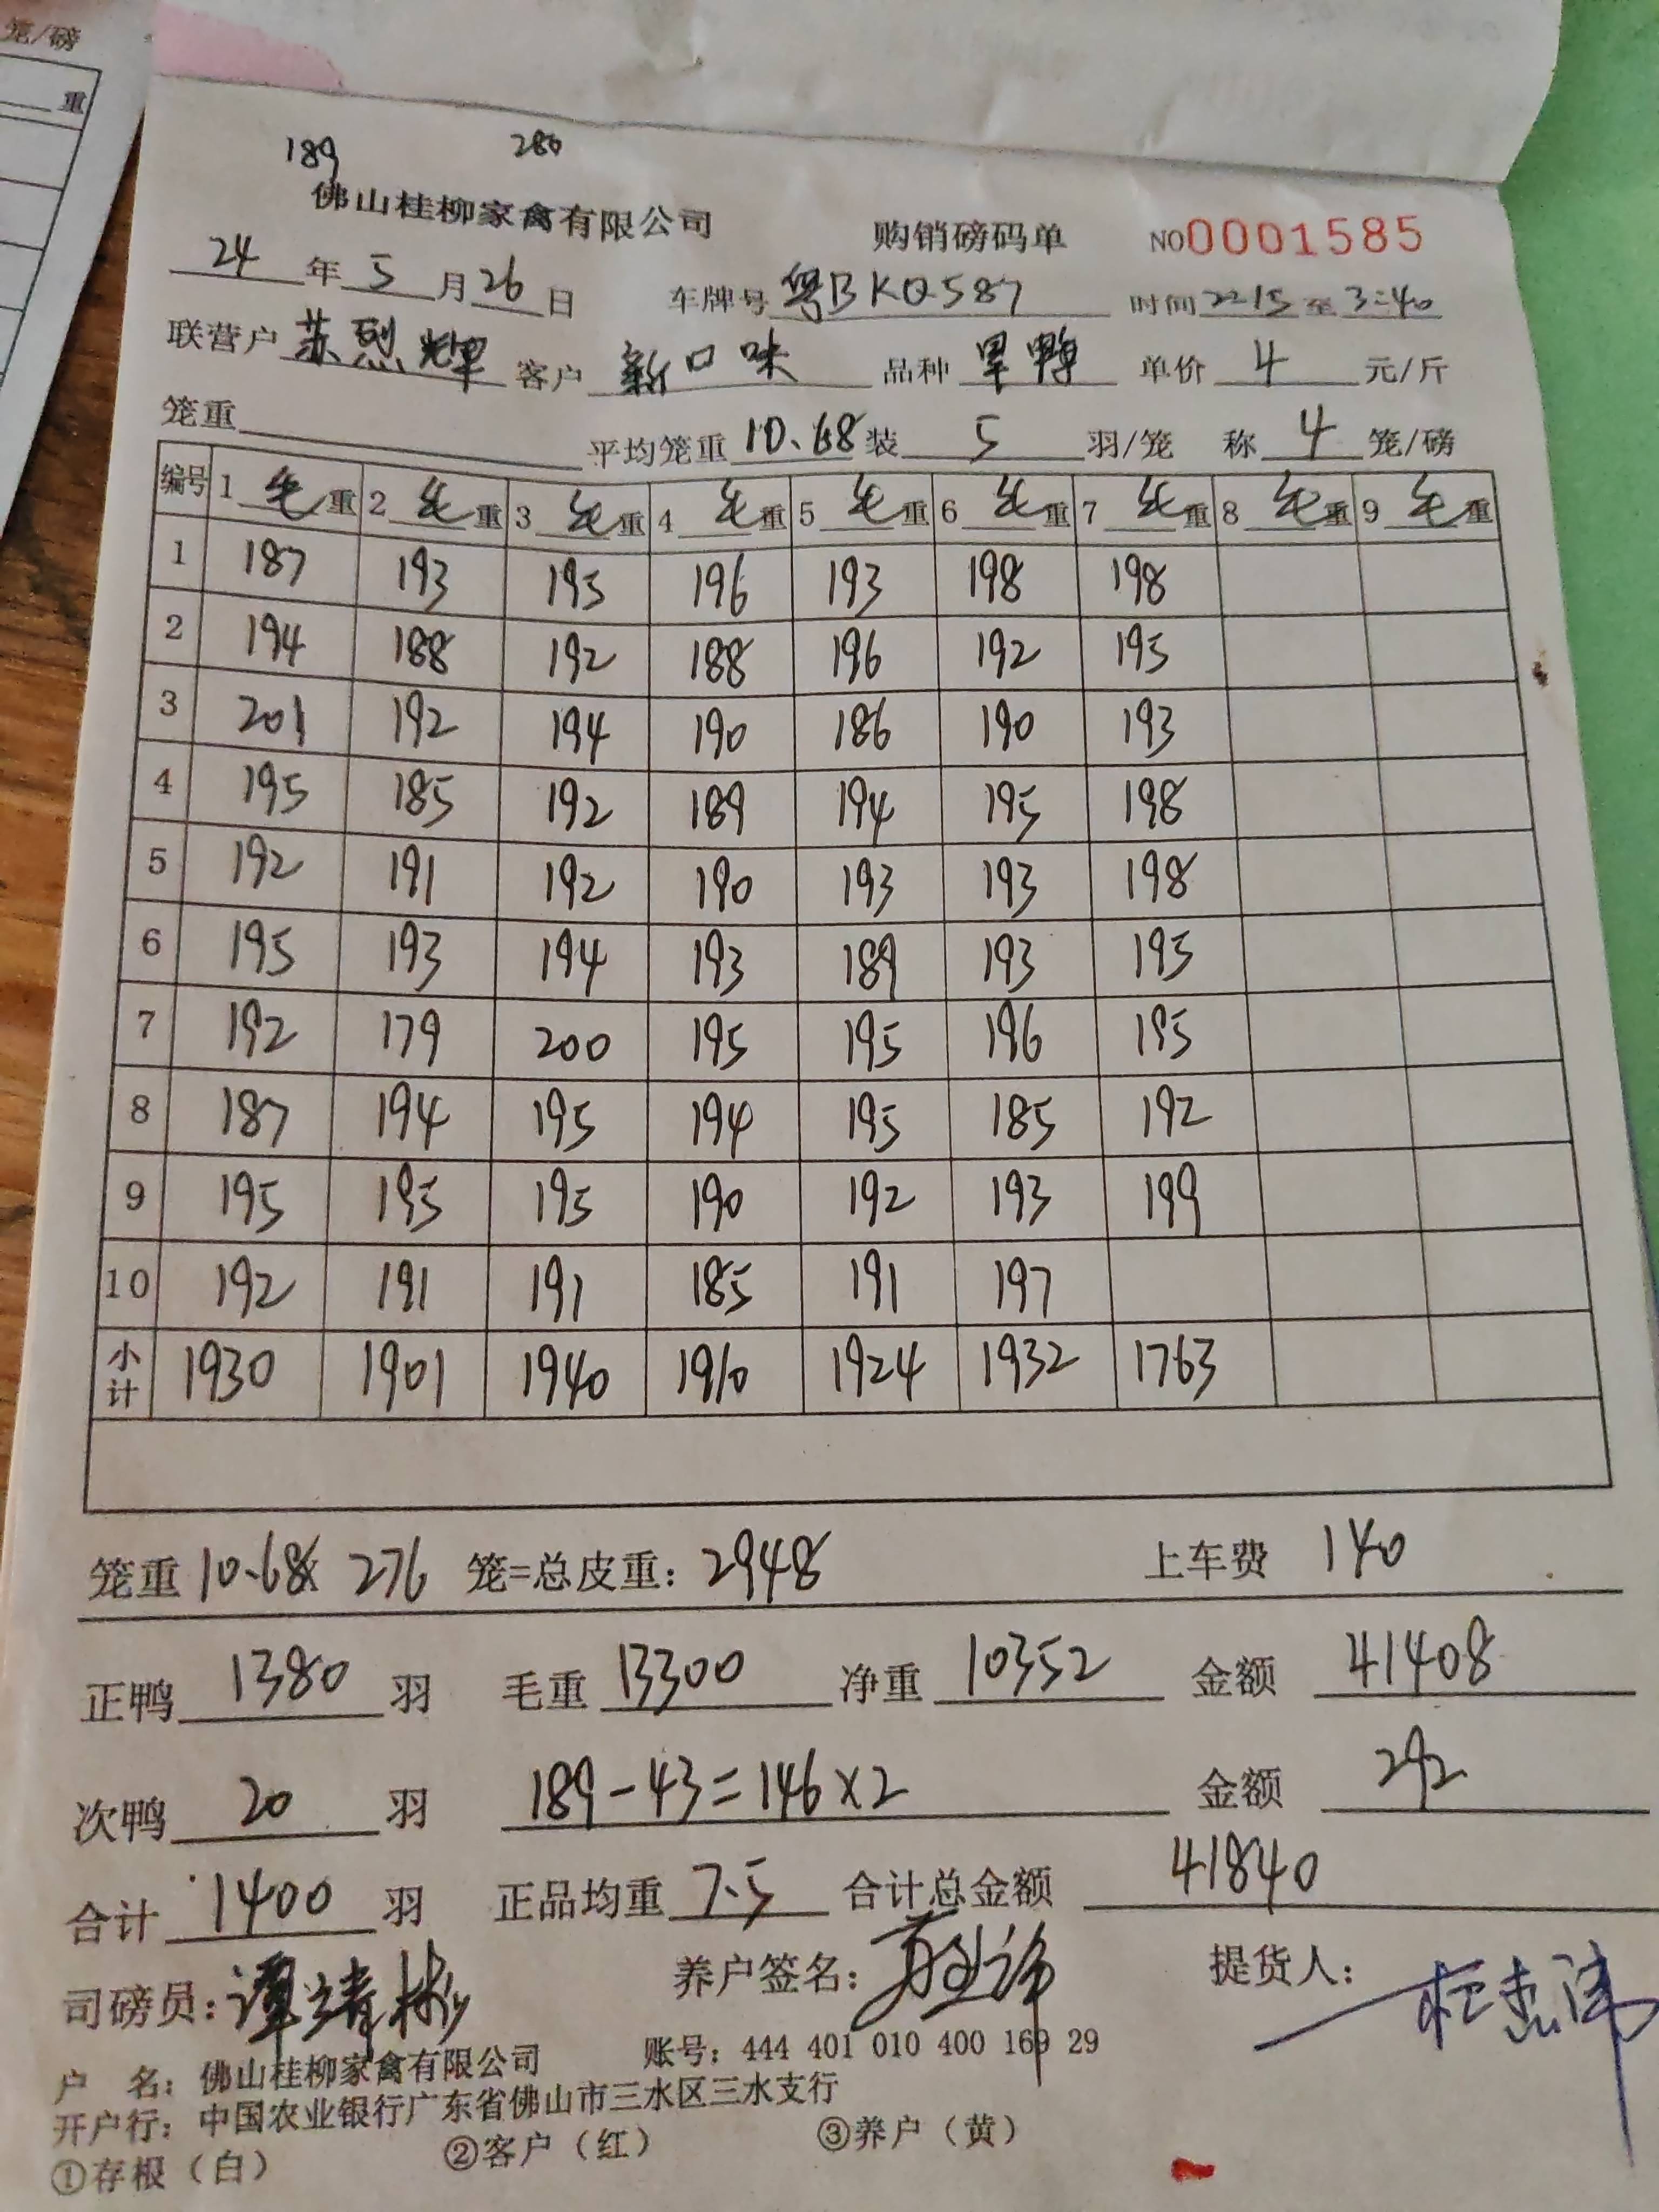 笼/磅
重
189 280
佛山桂柳家禽有限公司 购销磅码单 NO0001585
24年5月26日 车牌号粤BKQ587 时间2215至3:40
联营户苏烈辉 客户新口味 品种 单价4元/斤
笼重 平均笼重10.68装5羽/笼 称4笼/磅
编号 1毛重 2毛重 3毛重 4毛重 5毛重 6毛重 7毛重 8毛重 9毛重
1 187 193 195 196 193 198 198
2 194 188 192 188 196 192 195
3 201 192 194 190 186 190 193
4 195 185 192 189 194 195 198
5 192 191 192 190 193 193 198
6 195 193 194 193 189 193 195
7 192 179 200 195 195 196 195
8 187 194 195 194 195 185 192
9 195 195 195 190 192 193 199
10 192 191 191 185 191 197
小计 1930 1901 1940 1910 1924 1932 1763
笼重10.68x 276 笼=总皮重：2948 上车费 140
正鸭1380羽 毛重13300 净重10352 金额41408
次鸭20羽 189-43=146x2 金额292
合计1400羽 正品均重7.5 合计总金额41840
司磅员：谭靖彬 养户签名： 提货人：
户 名：佛山桂柳家禽有限公司 账号：444 401 010 400 169 29
开户行：中国农业银行广东省佛山市三水区三水支行
①存根（白） ②客户（红） ③养户（黄）